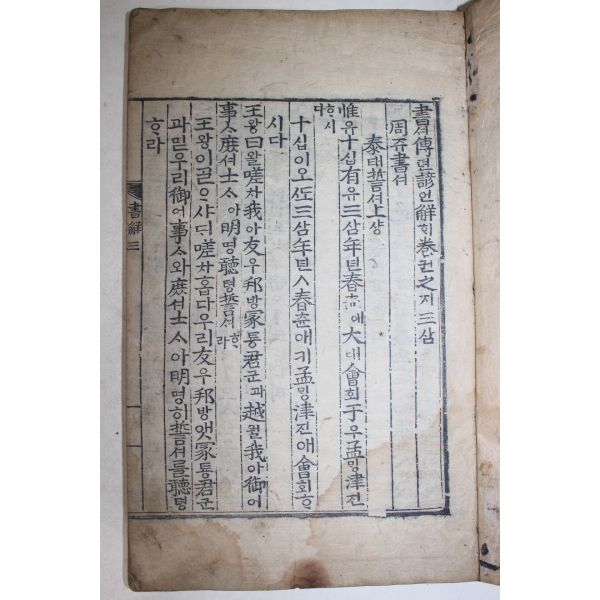 書셔傳뎐諺언解ᄒᆡ卷권之지三삼
周쥬書셔
泰태誓셔上샹
惟유十십有유三삼年년春츈애大대會회于우孟ᄆᆡᆼ津진
ᄒᆞ시
다
十십이오ᄯᅩ三삼年년ㅅ春츈애키孟ᄆᆡᆼ津진애會회ᄒᆞ
시다
王왕曰왈嗟차我아友우邦방冡통君군과越월我아御어
事ᄉᆞ庶셔士ᄉᆞ아明명聽텽誓셔ᄒᆞ
라
王왕이ᄀᆞᆯᄋᆞ샤ᄃᆡ嗟차홉다우리友우邦방앳冡통君군
과믿우리御어事ᄉᆞ와庶셔士ᄉᆞ아明명히誓셔를聽텽
ᄒᆞ라
書解三